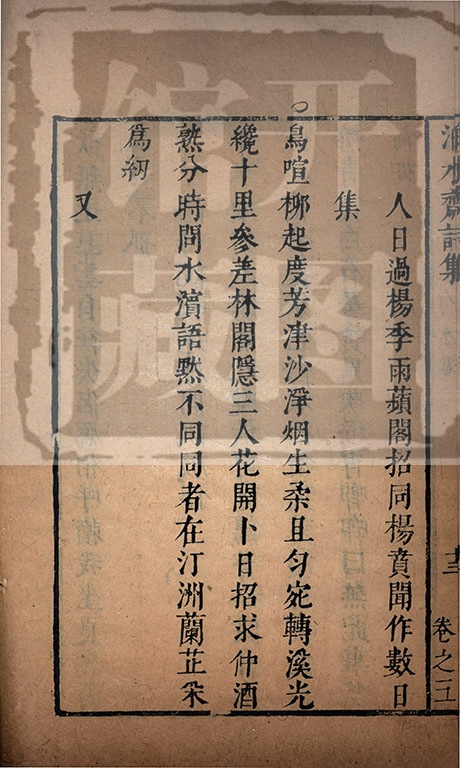 人日過楊季雨蘋閣招同楊賁聞作數日
集
○鳥喧柳起度芳津沙淨烟生柔且勻宛轉溪光
纔十里參差林閣隱三人花開卜日招求仲酒
熟分時問水濵語黙不同同者在汀洲蘭芷采
爲紉
又
齋詩集
卷之
開圖
館藏